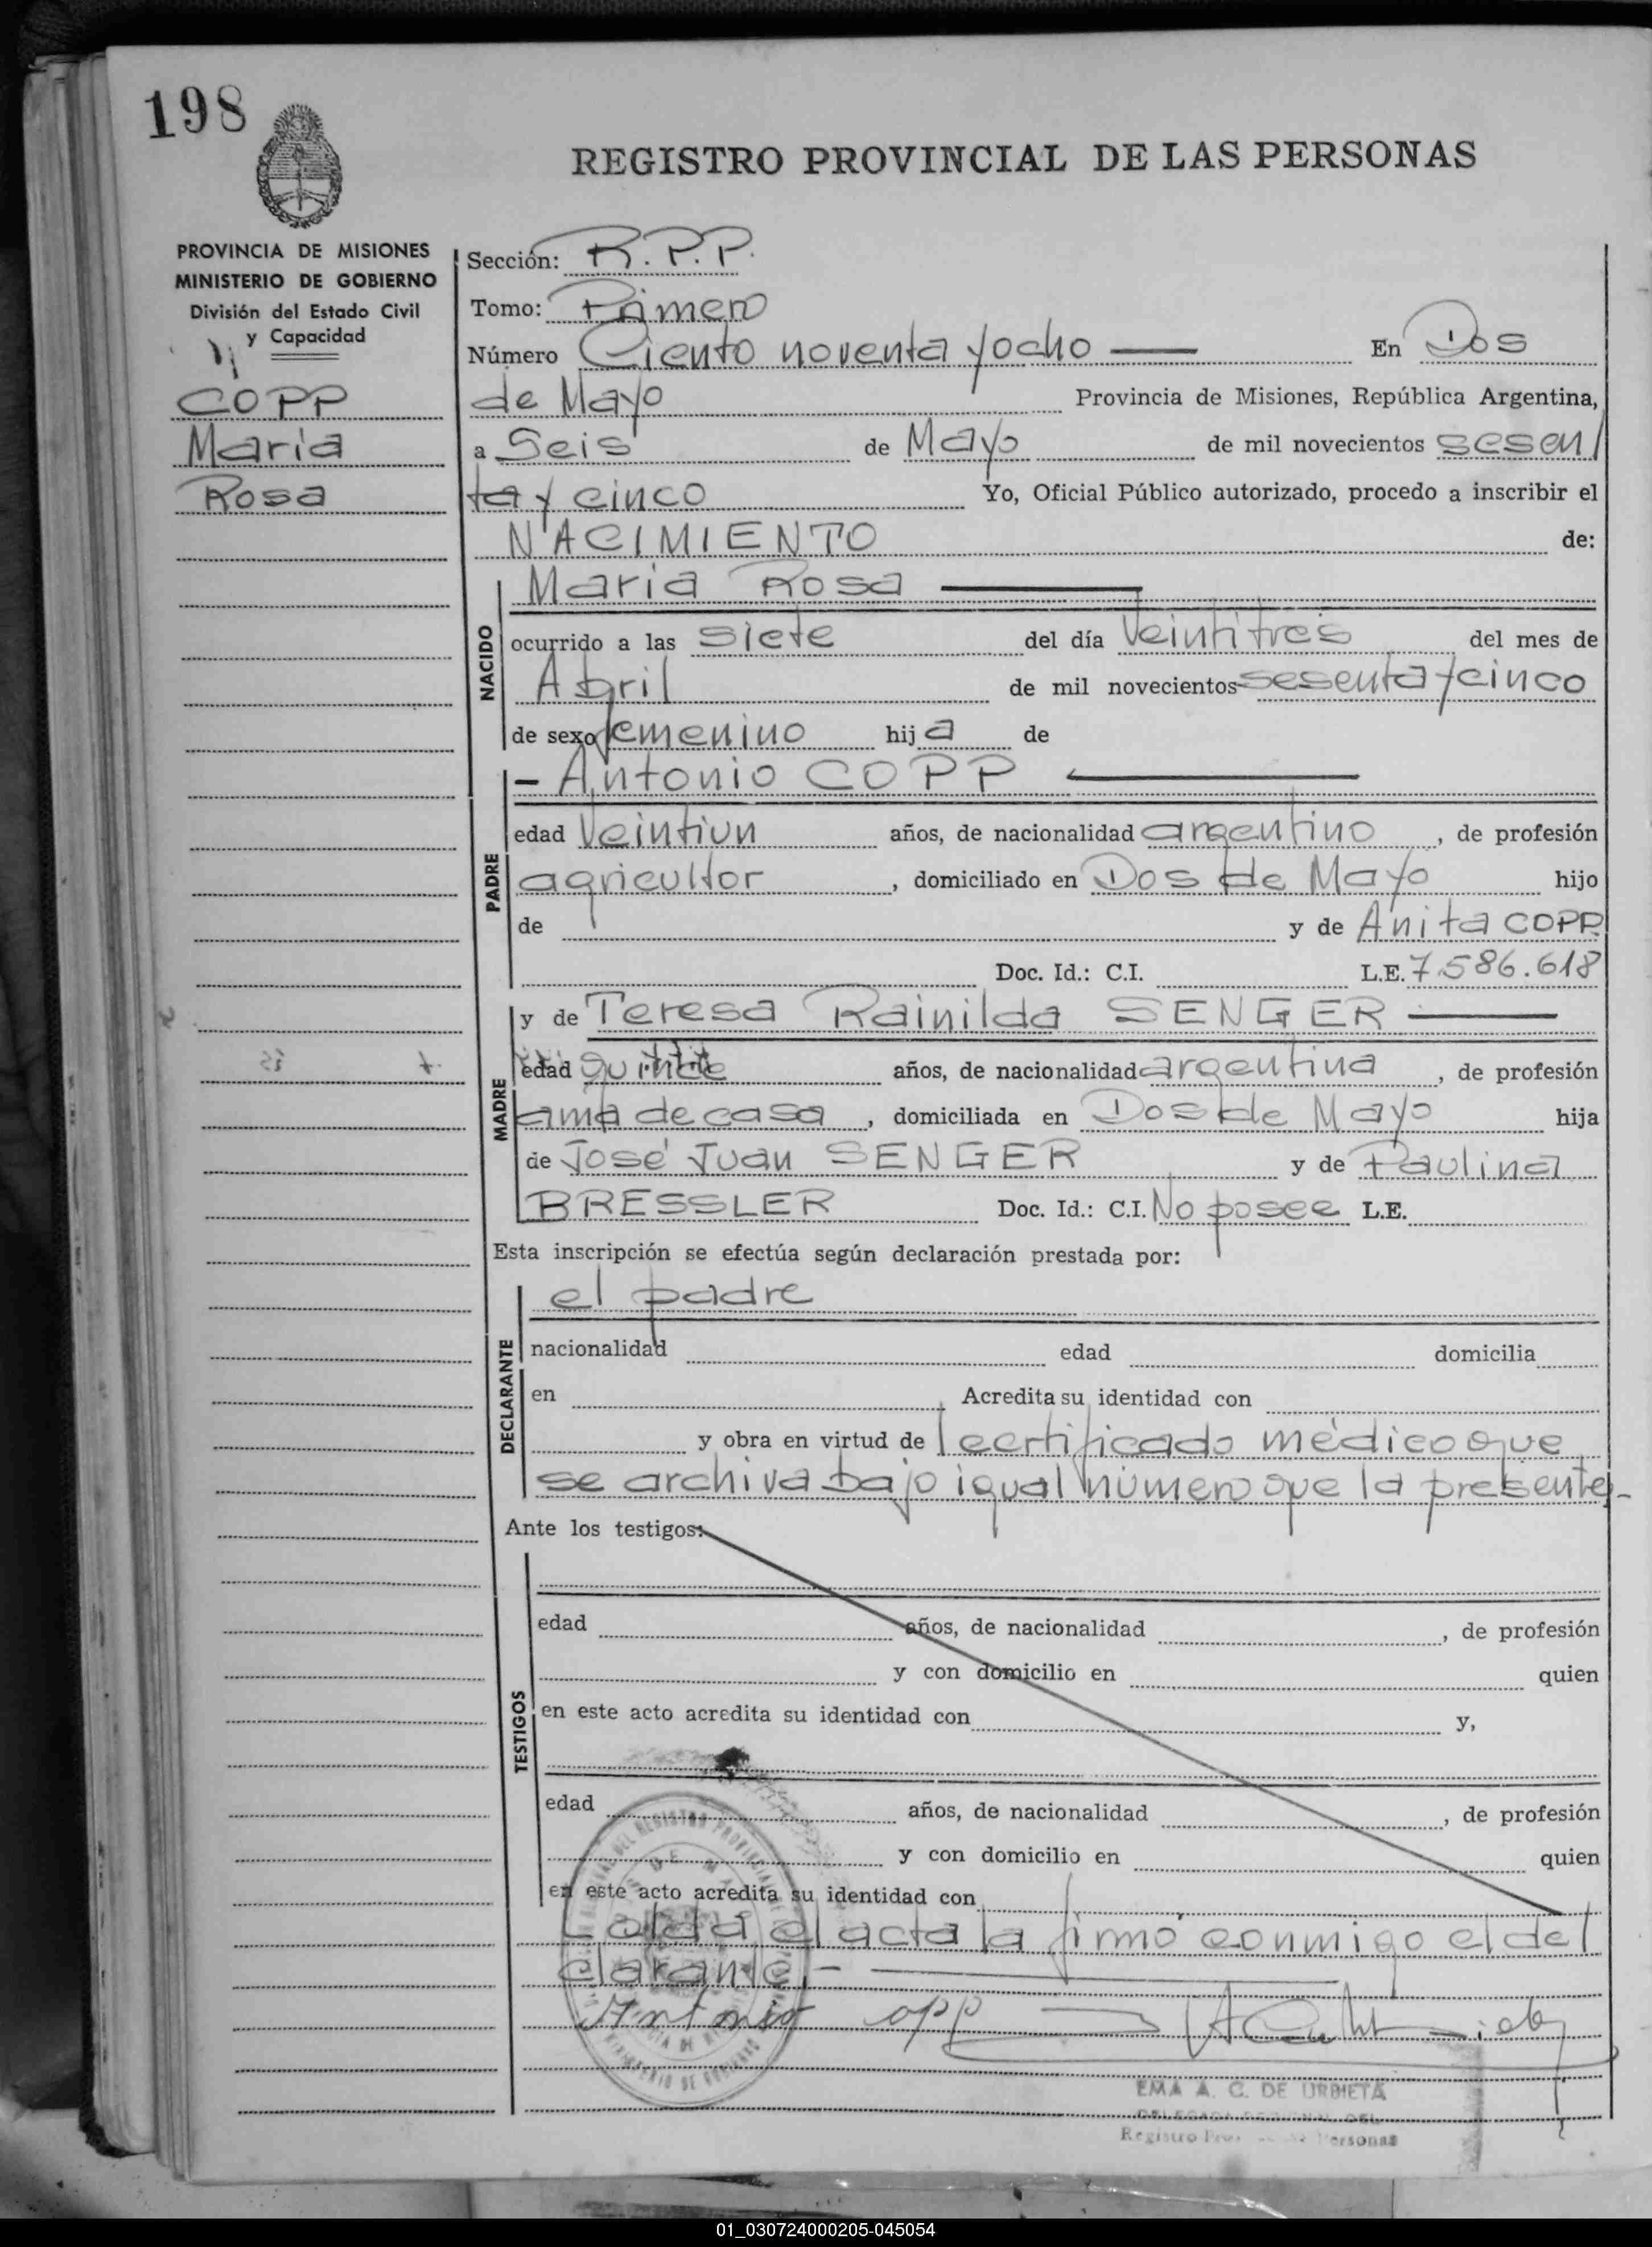 198
REGISTRO PROVINCIAL DE LAS PERSONAS
PROVINCIA DE MISIONES
MINISTERIO DE GOBIERNO
División del Estado Civil
y Capacidad
COPP
Maria
Rosa
Sección: R.P.P.
Tomo: Primero
Número Ciento noventa y ocho En Dos
de Mayo Provincia de Misiones, República Argentina,
a Seis de Mayo de mil novecientos sesen/
ta y cinco Yo, Oficial Público autorizado, procedo a inscribir el
NACIMIENTO de:
NACIDO
Maria Rosa
ocurrido a las siete del día Veintitres del mes de
Abril de mil novecientos sesenta y cinco
de sexo femenino hija de
PADRE
- Antonio COPP
edad Veintiun años, de nacionalidad argentino, de profesión
agricultor, domiciliado en Dos de Mayo hijo
de y de Anita COPP
Doc. Id.: C.I. L.E. 7.586.618
MADRE
y de Teresa Rainilda SENGER
edad quince años, de nacionalidad argentina, de profesión
ama de casa, domiciliada en Dos de Mayo hija
de José Juan SENGER y de Paulina
BRESSLER Doc. Id.: C.I. No posee L.E.
Esta inscripción se efectúa según declaración prestada por:
DECLARANTE
el padre
nacionalidad edad domicilia
en Acredita su identidad con
y obra en virtud de l certificado médico que
se archiva bajo igual número que la presente.-
Ante los testigos:
TESTIGOS
edad años, de nacionalidad , de profesión
y con domicilio en quien
en este acto acredita su identidad con y,
edad años, de nacionalidad , de profesión
y con domicilio en quien
en este acto acredita su identidad con
Leída el acta la firmó conmigo el de/
clarante.-
Antonio Copp
EMA A. C. DE URBIETA
Registro Personas
01_030724000205-045054